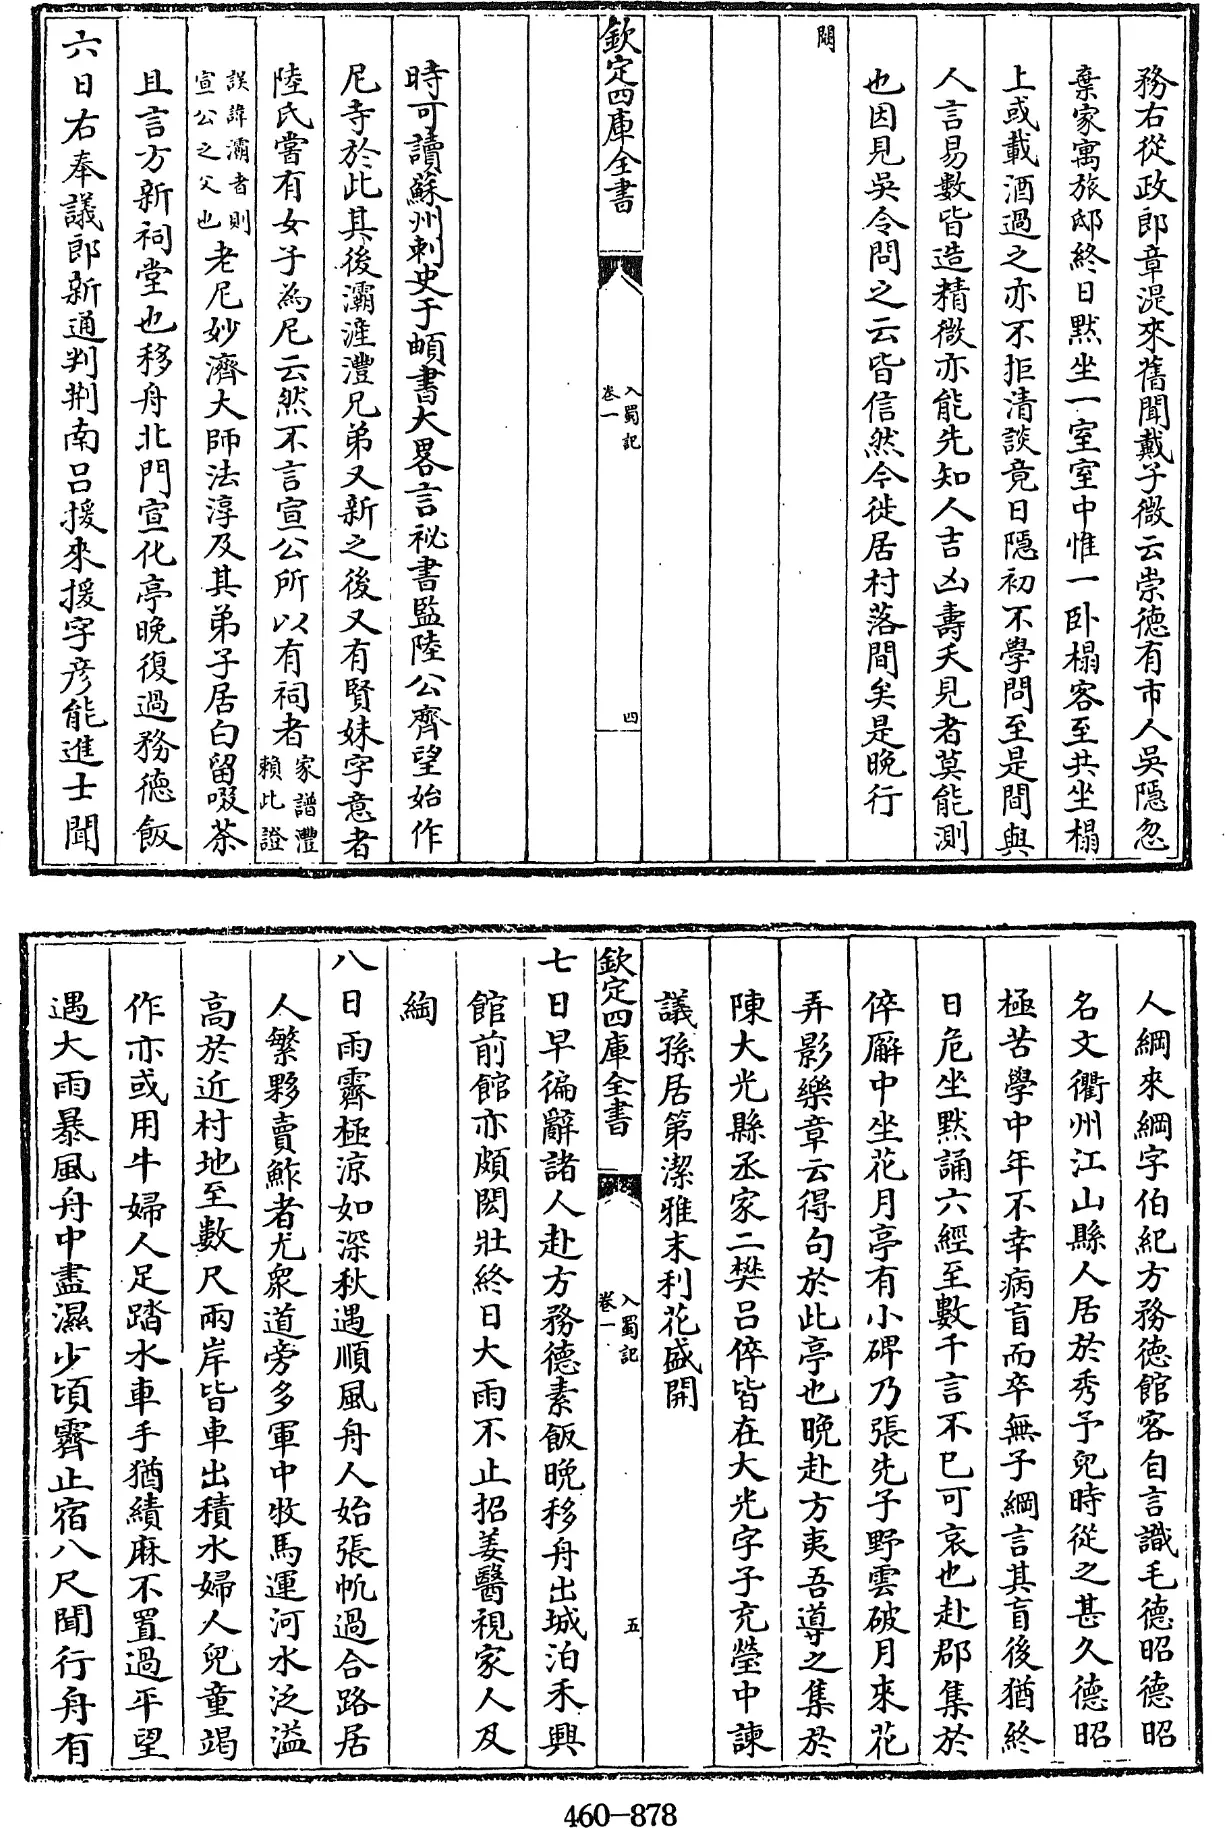 務右從政郎章湜來舊聞戴子微云崇德有市人吳隱忽
棄家寓旅邸終日默坐一室室中惟一卧榻客至共坐榻
上或載酒過之亦不拒清談竟日隱初不學問至是間與
人言易數皆造精微亦能先知人吉凶壽夭見者莫能測
也因見吳令問之云皆信然今徙居村落間矣是晚行
闕
欽定四庫全書
入蜀記
卷一
四
時可讀蘇州刺史于頔書大畧言祕書監陸公齊望始作
尼寺於此其後灞滻灃兄弟又新之後又有賢妹字意者
陸氏嘗有女子為尼云然不言宣公所以有祠者家譜灃
賴此證
誤諱灞者則
宣公之父也老尼妙濟大師法淳及其弟子居白留啜茶
且言方新祠堂也移舟北門宣化亭晚復過務德飯
六日右奉議郎新通判荆南呂援來援字彦能進士聞
人綱來綱字伯紀方務德館客自言識毛德昭德昭
名文衢州江山縣人居於秀予兒時從之甚久德昭
極苦學中年不幸病盲而卒無子綱言其盲後猶終
日危坐默誦六經至數千言不已可哀也赴郡集於
倅廨中坐花月亭有小碑乃張先子野雲破月來花
弄影樂章云得句於此亭也晚赴方夷吾導之集於
陳大光縣丞家二樊呂倅皆在大光字子充瑩中諫
議孫居第潔雅末利花盛開
欽定四庫全書
入蜀記
卷一
五
七日早徧辭諸人赴方務德素飯晚移舟出城泊禾興
館前館亦頗閎壯終日大雨不止招姜醫視家人及
綯
八日雨霽極涼如深秋遇順風舟人始張帆過合路居
人繁夥賣鮓者尤衆道旁多軍中牧馬運河水泛溢
高於近村地至數尺兩岸皆車出積水婦人兒童竭
作亦或用牛婦人足踏水車手猶績麻不置過平望
遇大雨暴風舟中盡濕少頃霽止宿八尺聞行舟有
460-878